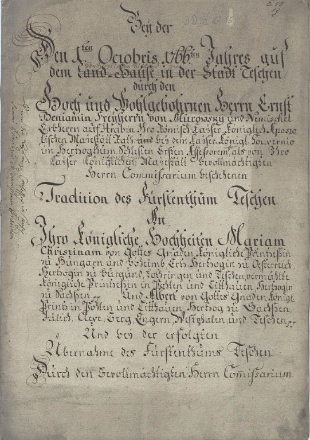 Bey der
Den 1ten Octobris 1766ten Jahres auf
dem Land Hause in der Stadt Teschen
durch den
Hoch und Wohlgebohrnen Herrn Ernst
Benjamin Freyherrn von Mitrowsky und Nemischel
Erbherrn auf Ihro Römisch Kayser Königlich Aposto
lischen Majestätt Rath und bey dem Kayser Königl.
im Herzogthum von Ihro
Kayser Königlichen Majestätt Bevollmächtigten
Herrn Commissarium beschehenen
Tradition des Fürstenthum Teschen
An
Ihro Königliche Hochheiten Mariam
Christinam von Gottes Gnaden Königliche Prinzessin
zu Hungarn und Böheimb Ertz Herzogin zu Oesterreich
Herzogin zu Burgund, Lothringen und Teschen, vermählte
Königliche Prinzessin in Pohlen und Litthauen Herzogin
zu Sachsen Und Albert von Gottes Gnaden Königl.
Prinz in Pohlen und Litthauen Herzog zu Sachsen
Jülich, Cleve, Berg, Engern, Westphalen und Teschen
Und bey der erfolgten
Übernahme des Fürstenthums Teschen
Durch den Bevollmächtigten Herrn Comissarium